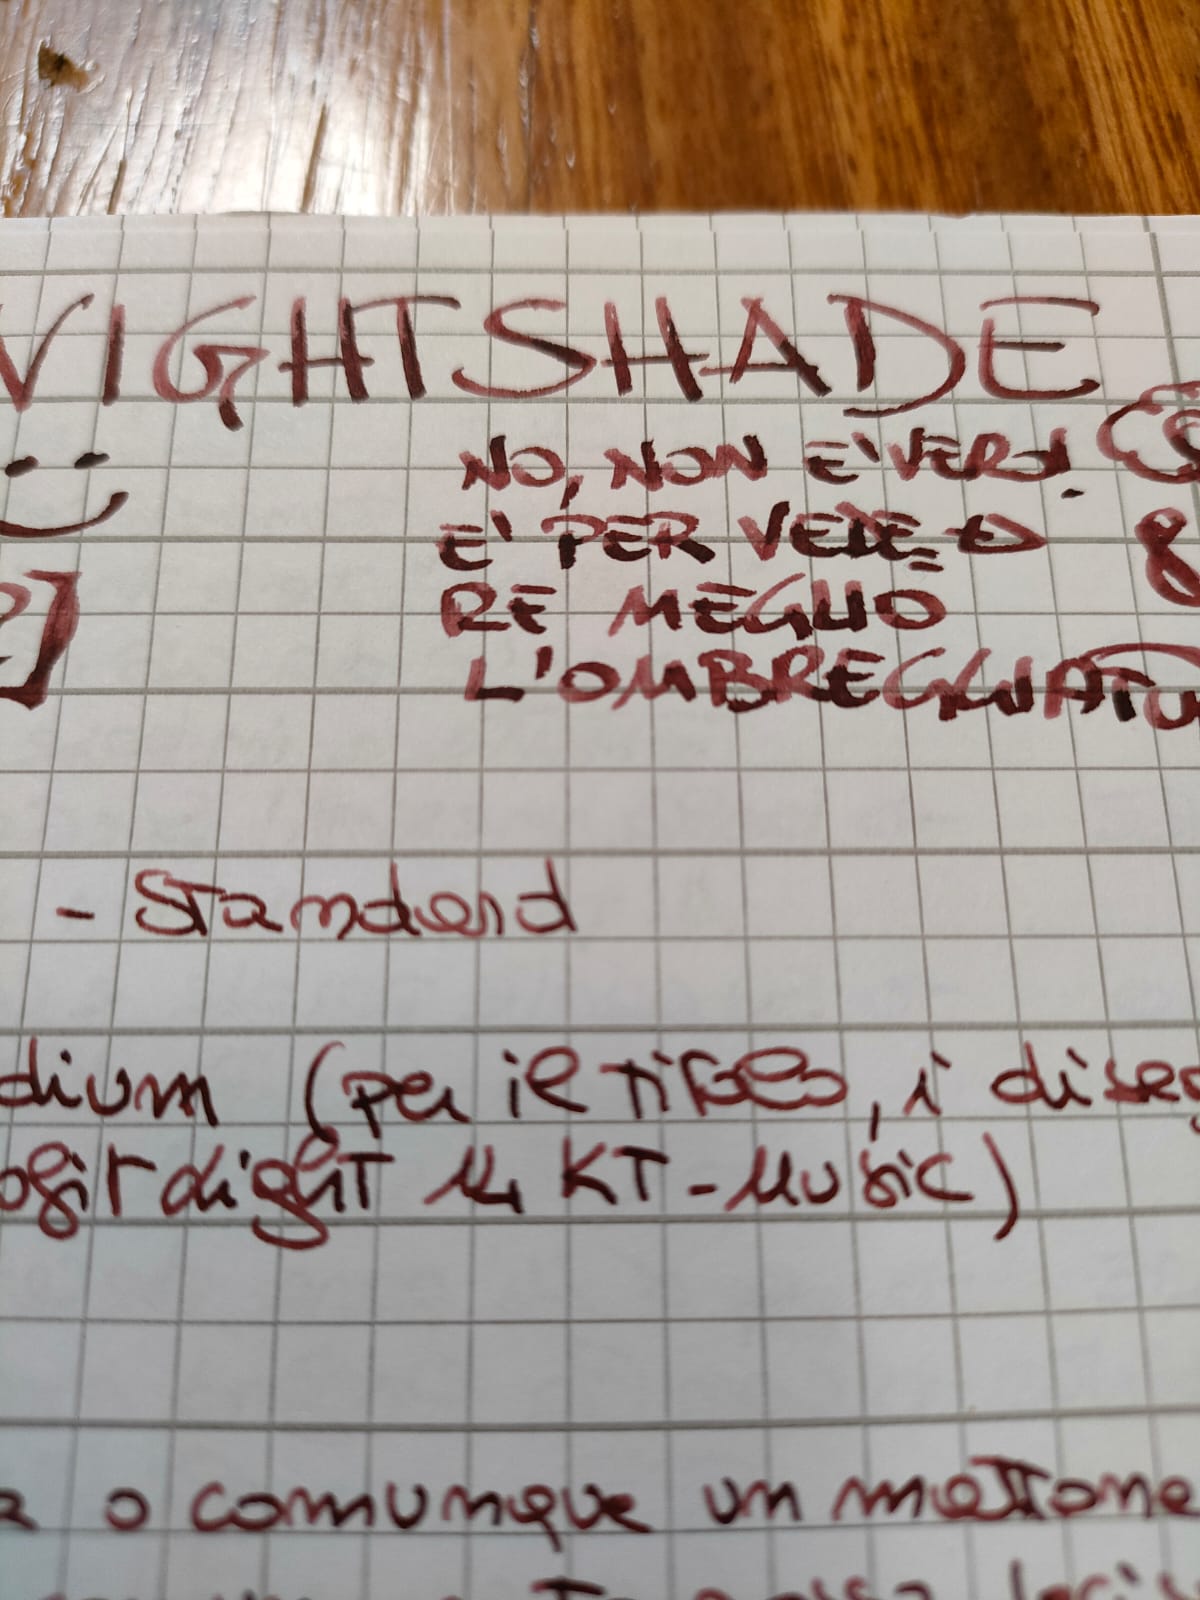 NIGHTSHADE
NO, NON E' VERO!
E' PER VEDE=
RE MEGLIO
L'OMBREGGIATU
8
- Standard
dium (per il titolo, i diseg
KT-Music)
a o comunque un mattone